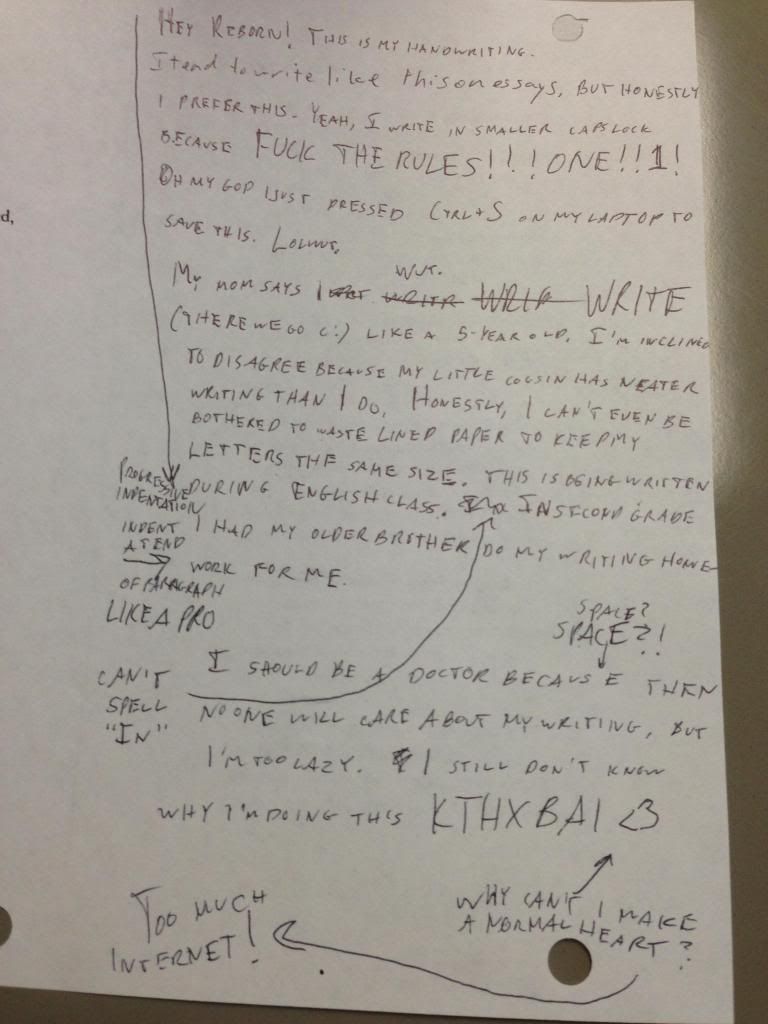 HEY REBORN! THIS IS MY HANDWRITING.
I tend to write like this on essays, BUT HONESTLY
I PREFER THIS. YEAH, I WRITE IN SMALLER CAPSLOCK
BECAUSE FUCK THE RULES!!!ONE!!1!
OH MY GOD I JUST PRESSED CTRL+S ON MY LAPTOP TO
SAVE THIS. LOLWUT.
WUT.
MY MOM SAYS I WRITE
(THERE WE GO C:) LIKE A 5-YEAR OLD. I'M INCLINED
TO DISAGREE BECAUSE MY LITTLE COUSIN HAS NEATER
WRITING THAN I DO. HONESTLY, I CAN'T EVEN BE
BOTHERED TO WASTE LINED PAPER TO KEEP MY
LETTERS THE SAME SIZE. THIS IS BEING WRITTEN
DURING ENGLISH CLASS. IN SECOND GRADE
I HAD MY OLDER BROTHER DO MY WRITING HOME-
WORK FOR ME.
PROGRESSIVE
INDENTATION
INDENT
AT END
OF PARAGRAPH
LIKE A PRO
SPACE?
SPACE?!
I SHOULD BE A DOCTOR BECAUSE THEN
NO ONE WILL CARE ABOUT MY WRITING, BUT
I'M TOO LAZY. I STILL DON'T KNOW
WHY I'M DOING THIS KTHXBAI <3
CAN'T
SPELL
"IN"
WHY CAN'T I MAKE
A NORMAL HEART?
TOO MUCH
INTERNET!
d,